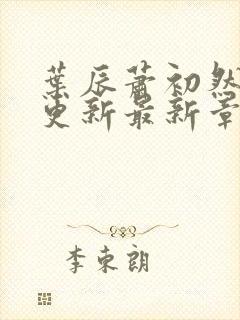 葉辰蕭初然
更新最新章
李東朗